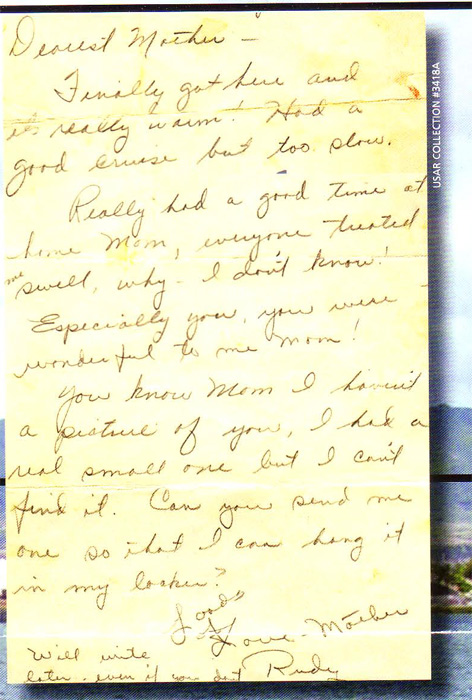 Dearest Mother –
Finally got here and
it's really warm! Had a
good cruise but too slow.
Really had a good time at
home Mom, everyone treated
me swell, why - I don't know!
Especially you, you were
wonderful to me mom!
You know Mom I haven't
a picture of you, I had a
real small one but I can't
find it. Can you send me
one so that I can hang it
in my locker?
Loads
of Love - Mother
Rudy
Will write
later, even if you don't
USAR COLLECTION #3418A